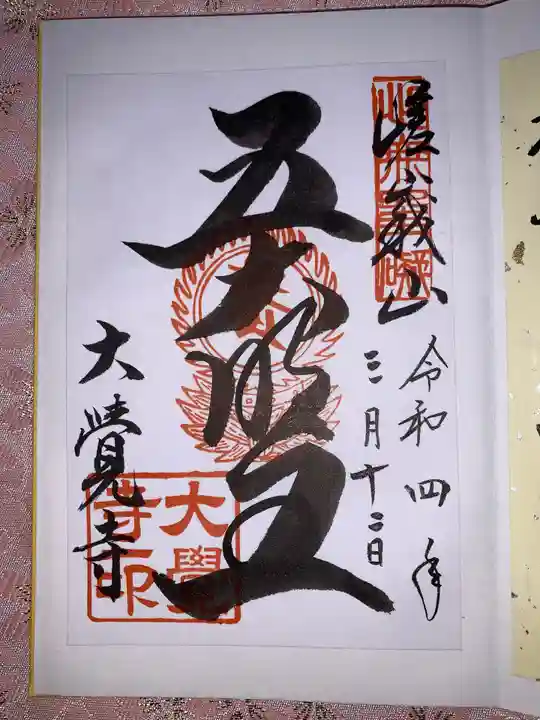 嵯峨山
令和四年
三月十二日
五大明王
大覺寺
大覺寺印